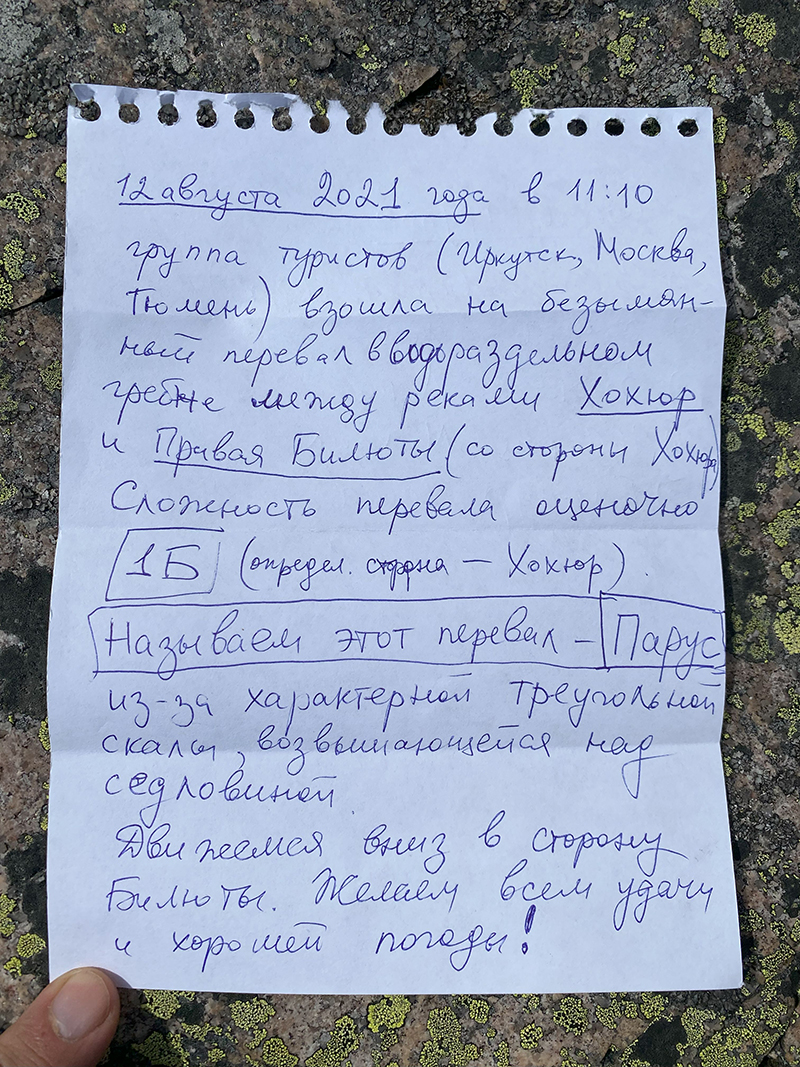 12 августа 2021 года в 11:10
группа туристов (Иркутск, Москва,
Тюмень) взошла на безымян-
ный перевал в водораздельном
гребне между реками Хохюр
и Правая Билюты (со стороны Хохюра)
Сложность перевала оценочно
1Б (определ. сторона — Хохюр).
Называем этот перевал – Парус
из-за характерной треугольной
скалы, возвышающейся над
седловиной
Движемся вниз в сторону
Билюты. Желаем всем удачи
и хорошей погоды!